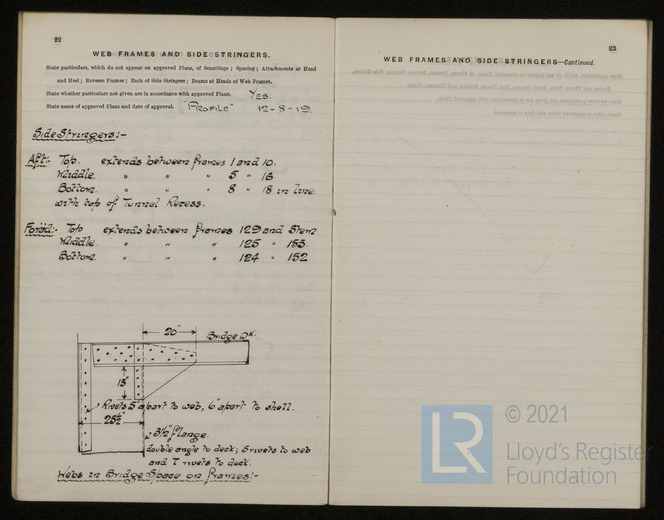 22
WEB FRAMES AND SIDE STRINGERS.
State particulars, which do not appear on approved Plans, of Scantlings; Spacing; Attachments at Head
and Heel; Reverse Frames; Ends of Side Stringers; Beams at Heads of Web Frames.
State whether particulars not given are in accordance with approved Plans. Yes.
State name of approved Plans and date of approval. "Profile" 12-8-19.
Side Stringers:-
Aft:- Top. extends between frames 1 and 10.
Middle. " " " 5 " 16
Bottom. " " " 8 " 18 in line.
with top of Tunnel Recess.
For'd:- Top extends between frames 129 and Stem
Middle. " " " 125 " 153.
Bottom. " " " 124 " 152
20"
Bridge Dk.
15"
Rivets 5" apart to web, 6" apart to shell.
25½"
3½" flange
double angle to deck; 5 rivets to web
and 7 rivets to deck.
Webs in Bridge Space on frames:-
23
WEB FRAMES AND SIDE STRINGERS—Continued.
LR
© 2021
Lloyd's Register
Foundation